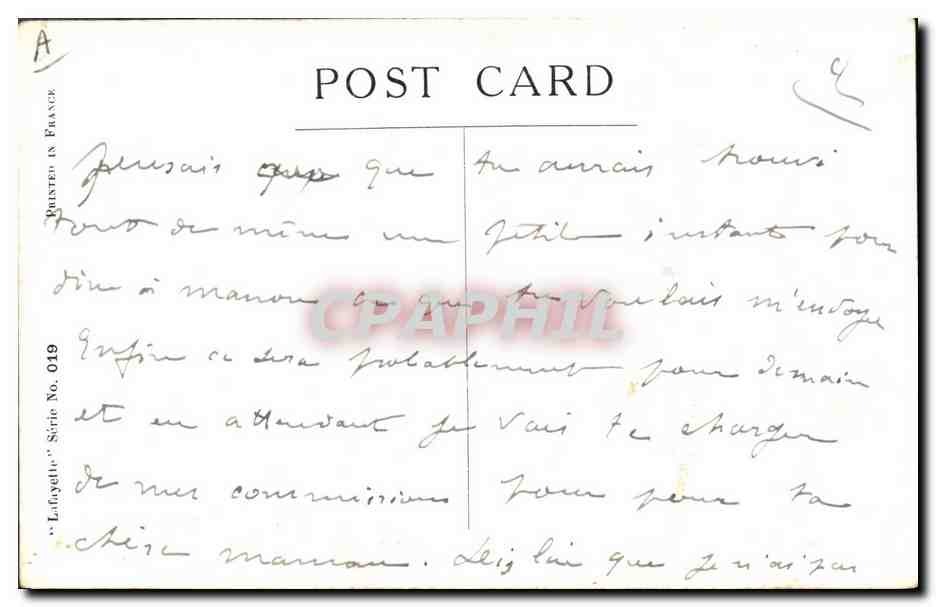 A
4
POST CARD
PRINTED IN FRANCE
"Lafayette" Série No. 019
pensais que tu aurais trouvé
tout de même un petit instant pour
dire à maman ce que tu voulais m'envoyer
Enfin ce sera probablement pour demain
et en attendant je vais te charger
de mes commissions pour pour ta
chère maman. Dis lui que je n'ai pas
CPAPHIL